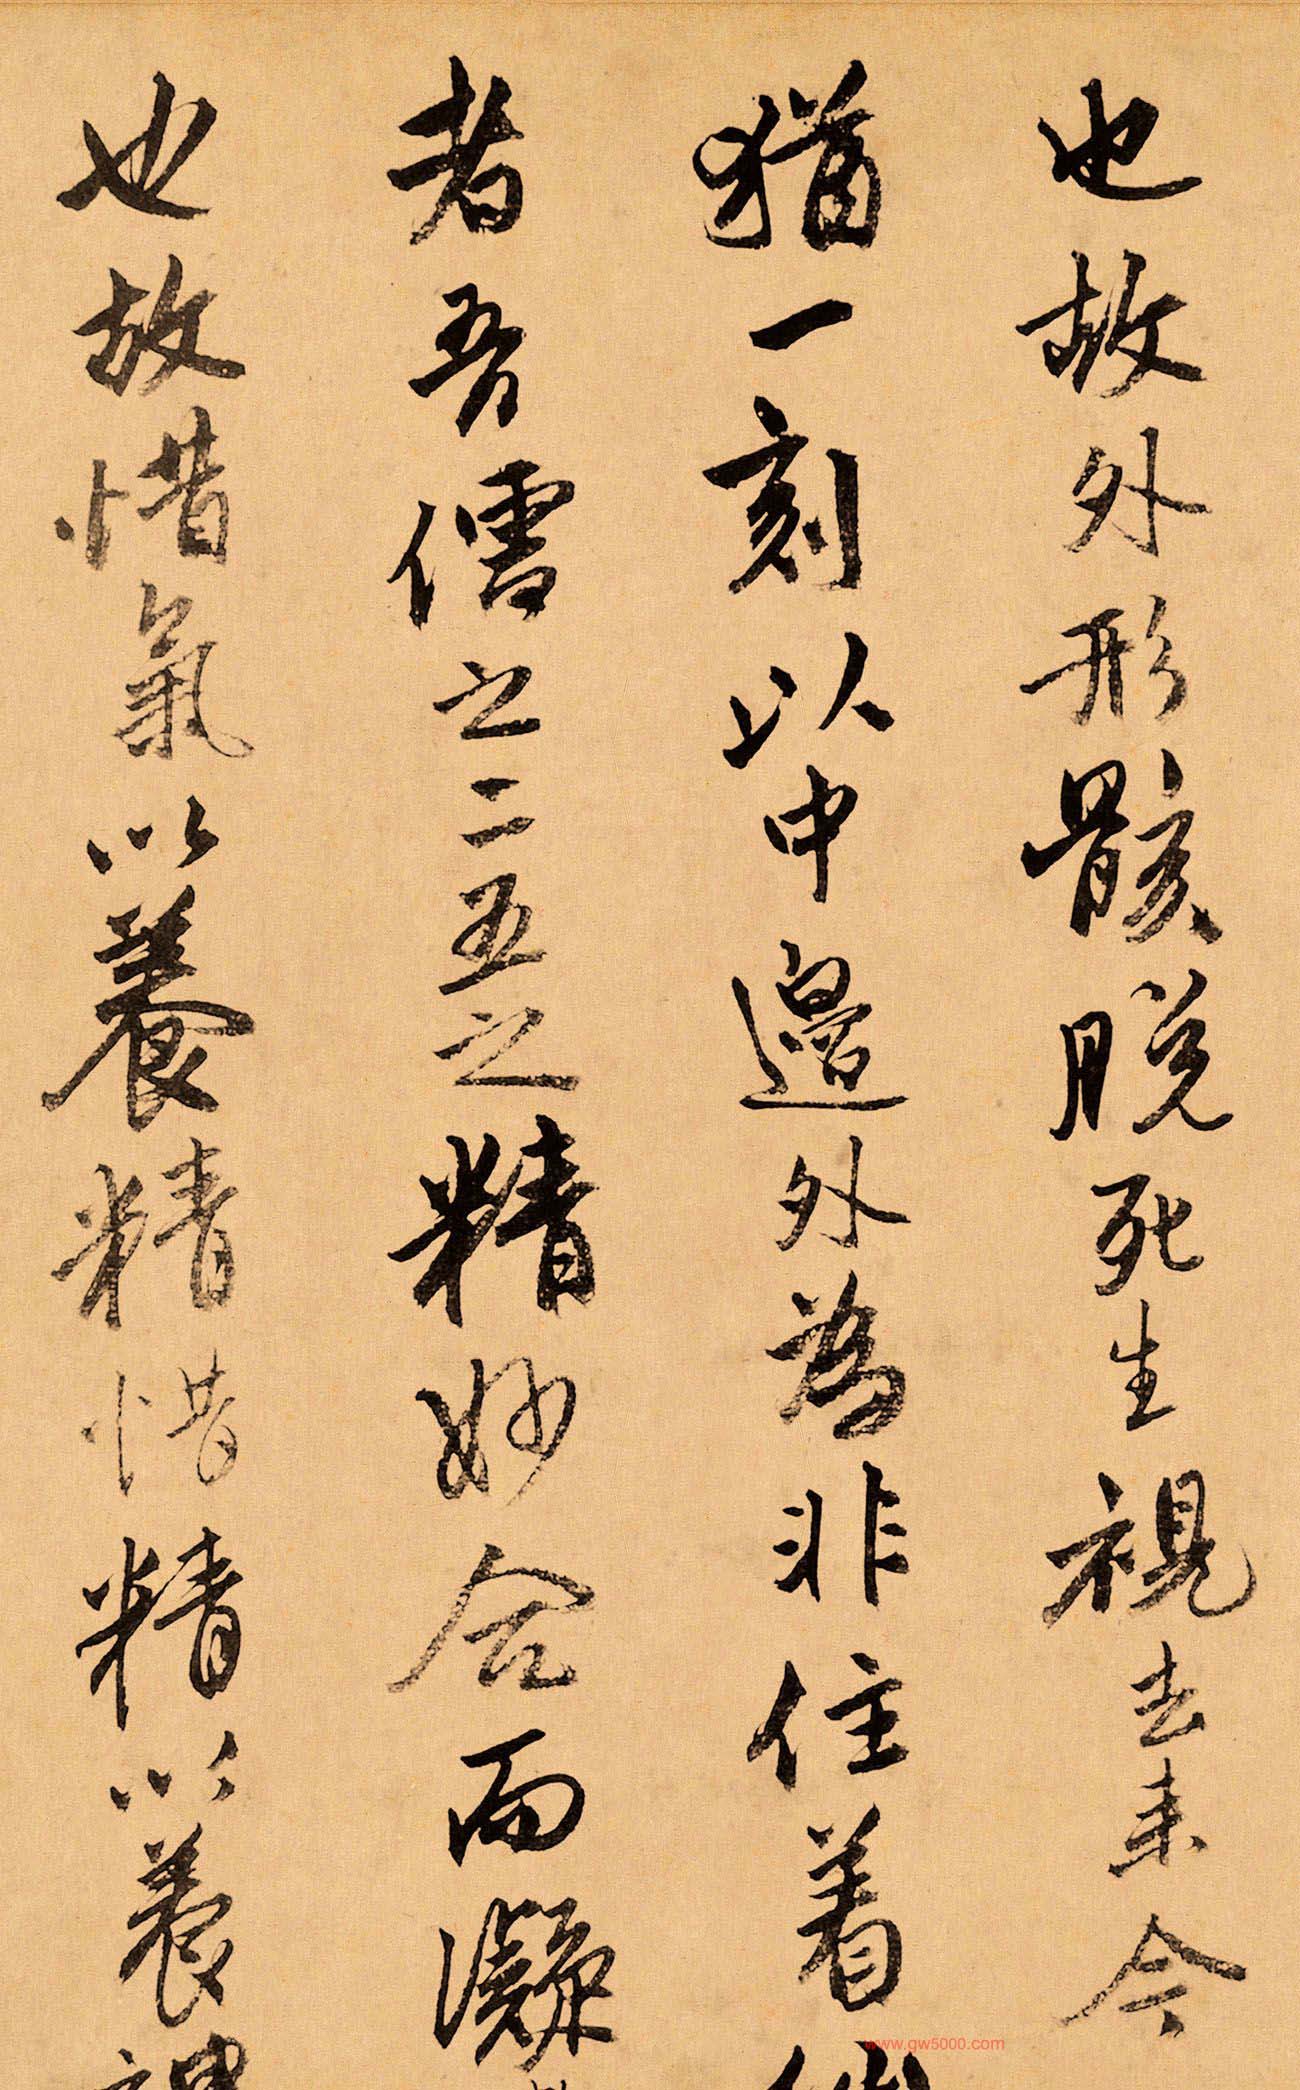 也故外形骸脱死生視去来今
猶一刻以中邊外為非住着
者吾儒之二五之精妙合而凝
也故惜氣以養精惜精以養神
www.gw5000.com